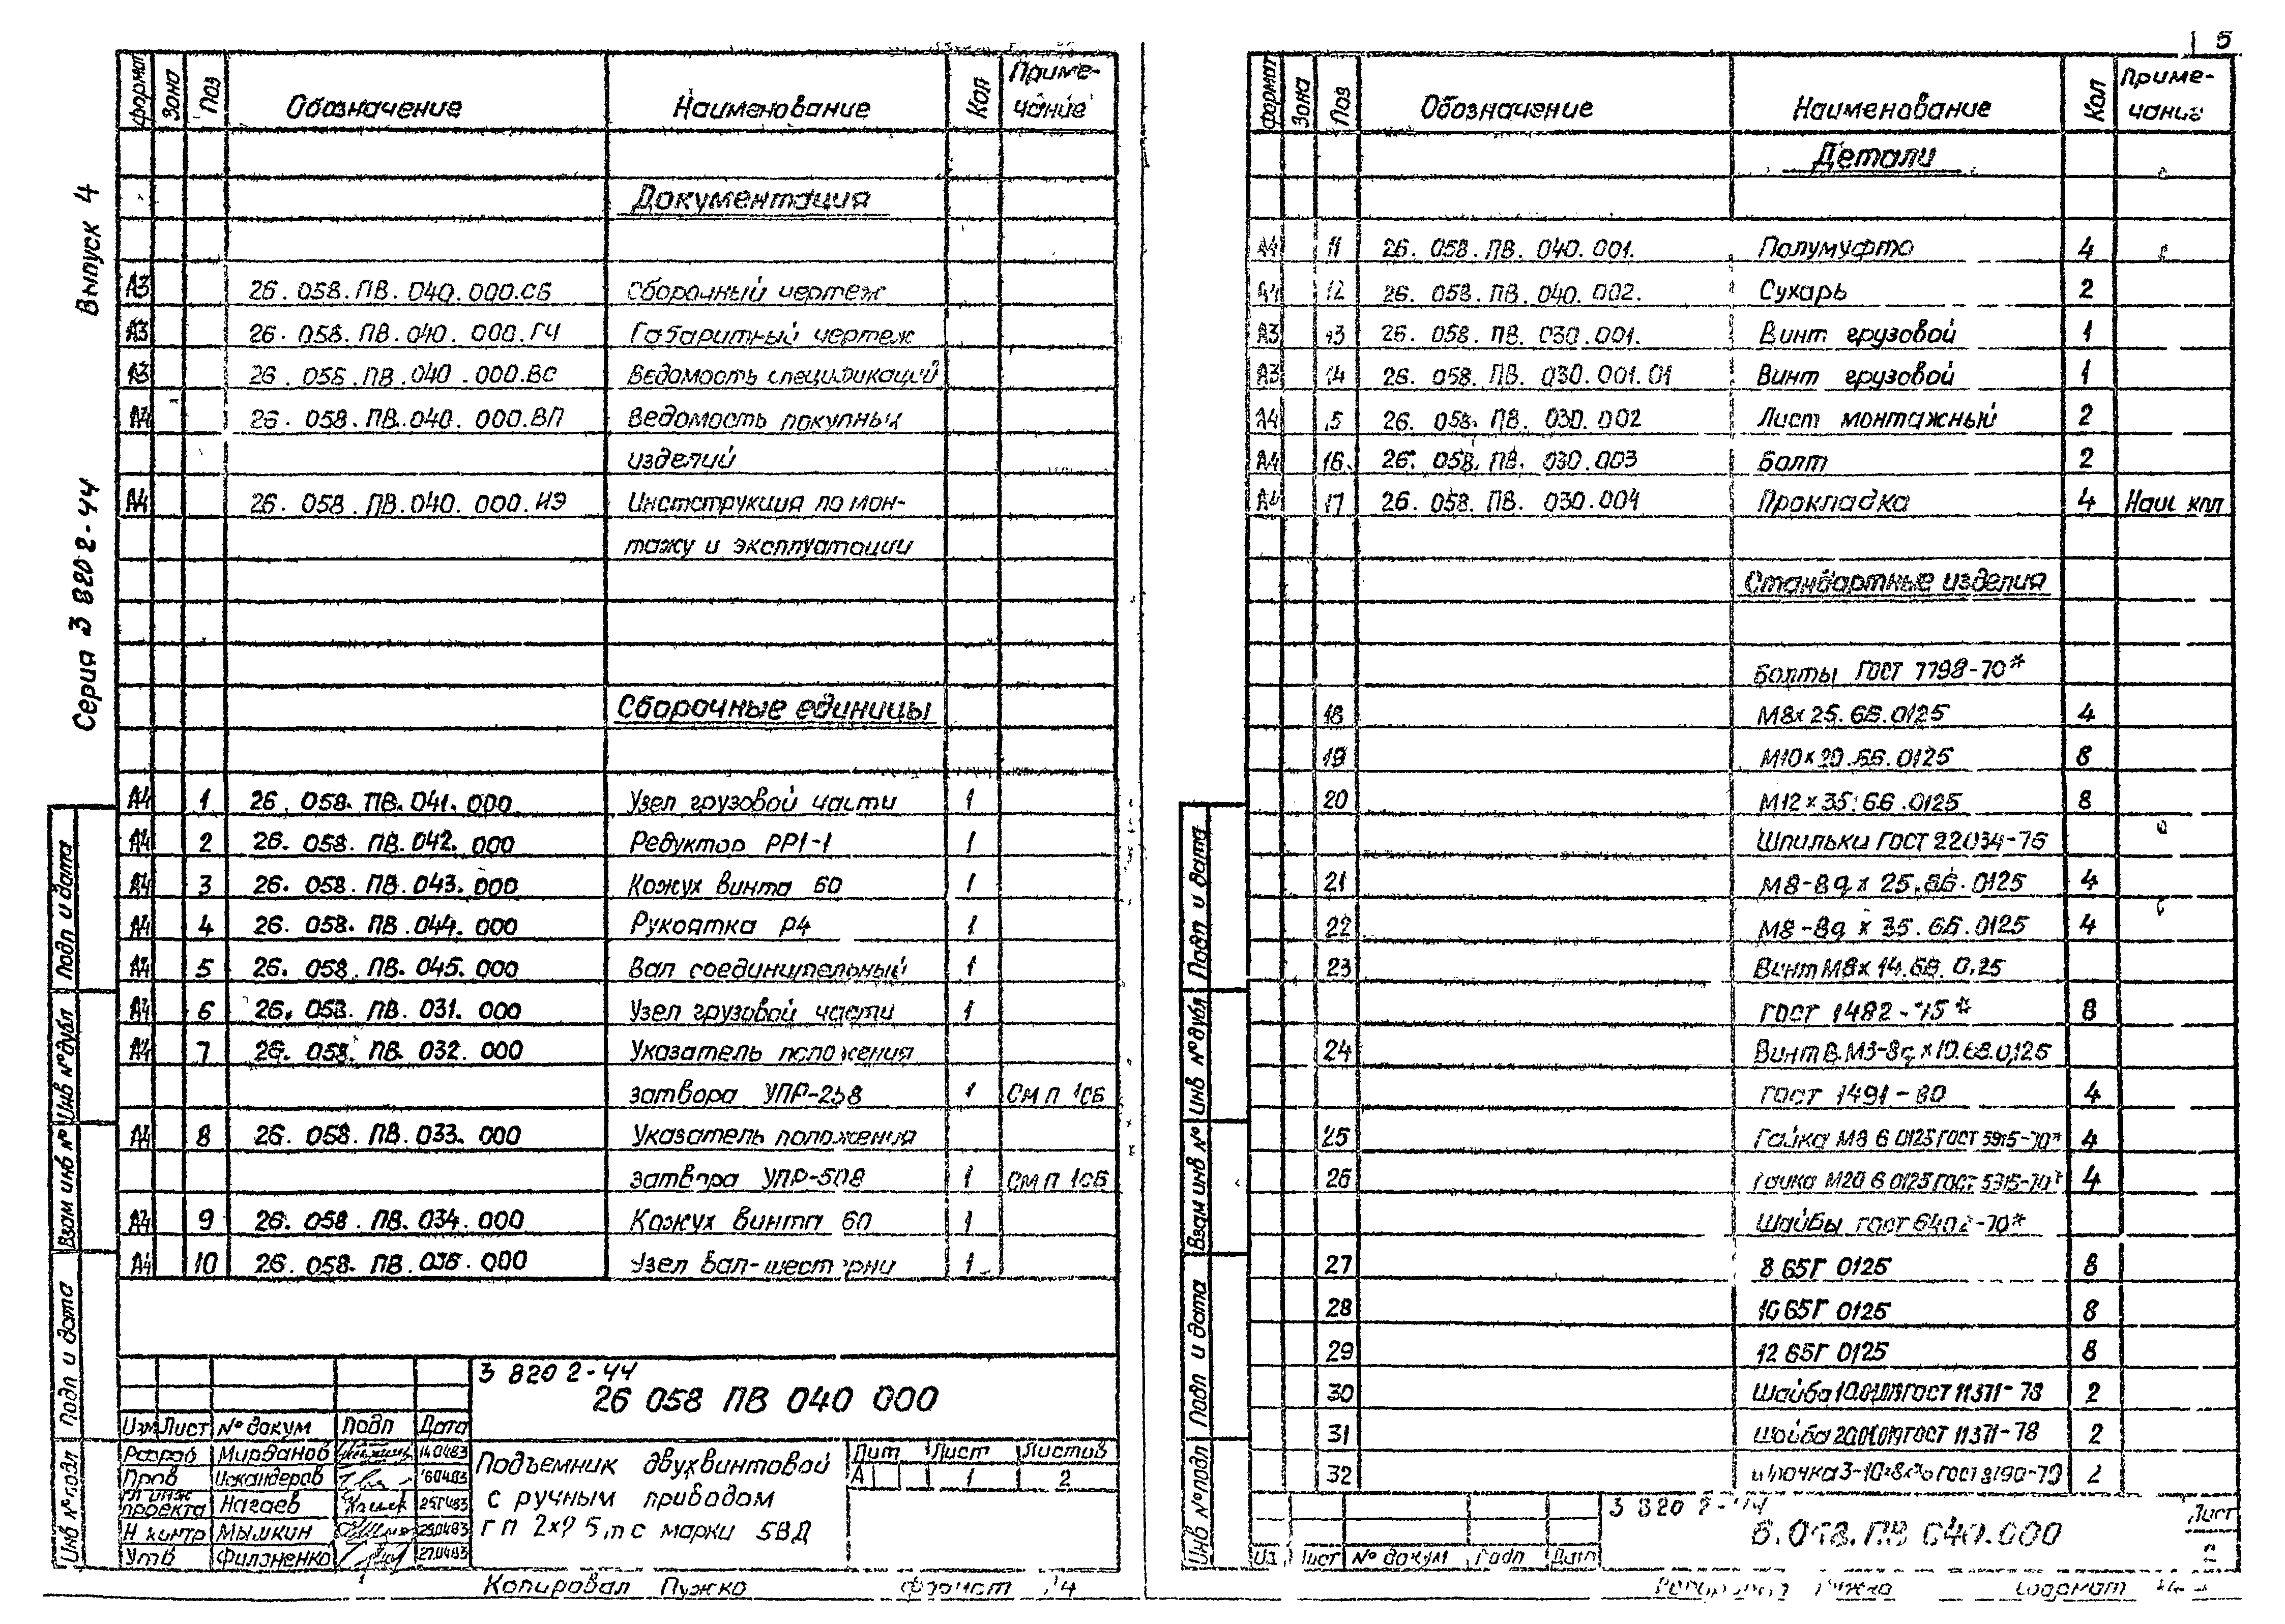 Серия 3 820 2-44 Выпуск 4
Формат Зона Поз Обозначение Наименование Кол Приме-
чание
Документация
А3 26.058.ПВ.040.000.СБ Сборочный чертеж
А3 26.058.ПВ.040.000.ГЧ Габаритный чертеж
А3 26.058.ПВ.040.000.ВС Ведомость спецификаций
А4 26.058.ПВ.040.000.ВП Ведомость покупных
изделий
А4 26.058.ПВ.040.000.ИЭ Инструкция по мон-
тажу и эксплуатации
Сборочные единицы
А4 1 26.058.ПВ.041.000 Узел грузовой части 1
А4 2 26.058.ПВ.042.000 Редуктор РР1-1 1
А4 3 26.058.ПВ.043.000 Кожух винта 60 1
А4 4 26.058.ПВ.044.000 Рукоятка Р4 1
А4 5 26.058.ПВ.045.000 Вал соединительный 1
А4 6 26.058.ПВ.031.000 Узел грузовой части 1
А4 7 26.058.ПВ.032.000 Указатель положения
затвора УПР-258 1 См п 1СБ
А4 8 26.058.ПВ.033.000 Указатель положения
затвора УПР-508 1 См п 1СБ
А4 9 26.058.ПВ.034.000 Кожух винта 60 1
А4 10 26.058.ПВ.036.000 Узел вал-шестерни 1
Подп и дата
Инв № дубл
Взам инв №
Подп и дата
Инв № подл
3 820 2-44
26 058 ПВ 040 000
Изм Лист № докум Подп Дата
Разраб 14.04.83
Пров Искандеров 16.04.83
Гл инж
проекта Нагаев 25.04.83
Н контр Мымкин 25.04.83
Утв Филоненко 27.04.83
Подъемник двухвинтовой
с ручным приводом
г п 2х2 5,тс марки 5ВД
Лит Лист Листов
А 1 2
Копировал Пужко Формат А4
5
Формат Зона Поз Обозначение Наименование Кол Приме-
чание
Детали
А4 11 26.058.ПВ.040.001. Полумуфта 4
А4 12 26.058.ПВ.040.002. Сухарь 2
А3 13 26.058.ПВ.030.001. Винт грузовой 1
А3 14 26.058.ПВ.030.001.01 Винт грузовой 1
А4 15 26.058.ПВ.030.002 Лист монтажный 2
А4 16 26.058.ПВ.030.003 Болт 2
А4 17 26.058.ПВ.030.004 Прокладка 4 Наиб кол
Стандартные изделия
Болты ГОСТ 7798-70*
18 М8х25.66.0125 4
19 М10х20.66.0125 8
20 М12х35.66.0125 8
Шпильки ГОСТ 22034-76
21 М8-8gх25.66.0125 4
22 М8-8gх35.66.0125 4
23 Винт М8х14.68.0125
ГОСТ 1482-75* 8
24 Винт В.М5-8gх10.68.0125
ГОСТ 1491-80 4
25 Гайка М8 6 0125 ГОСТ 5915-70* 4
26 Гайка М20 6 0125 ГОСТ 5915-70* 4
Шайбы ГОСТ 6402-70*
27 8 65Г 0125 8
28 10 65Г 0125 8
29 12 65Г 0125 8
30 Шайба ГОСТ 11371-78 2
31 Шайба ГОСТ 11371-78 2
32 ГОСТ 2
Подп и дата
Инв № дубл
Взам инв №
Подп и дата
Инв № подл
3 820 2-44
6.058.ПВ 040.000
Лист
Из Лист № докум Подп Дата
Пужко Формат